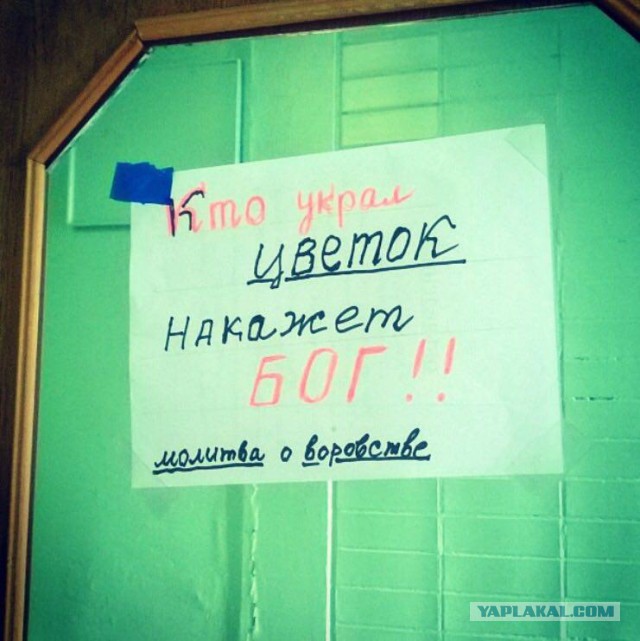 Кто украл
цветок
накажет
БОГ!!
молитва о воровстве
YAPLAKAL.COM